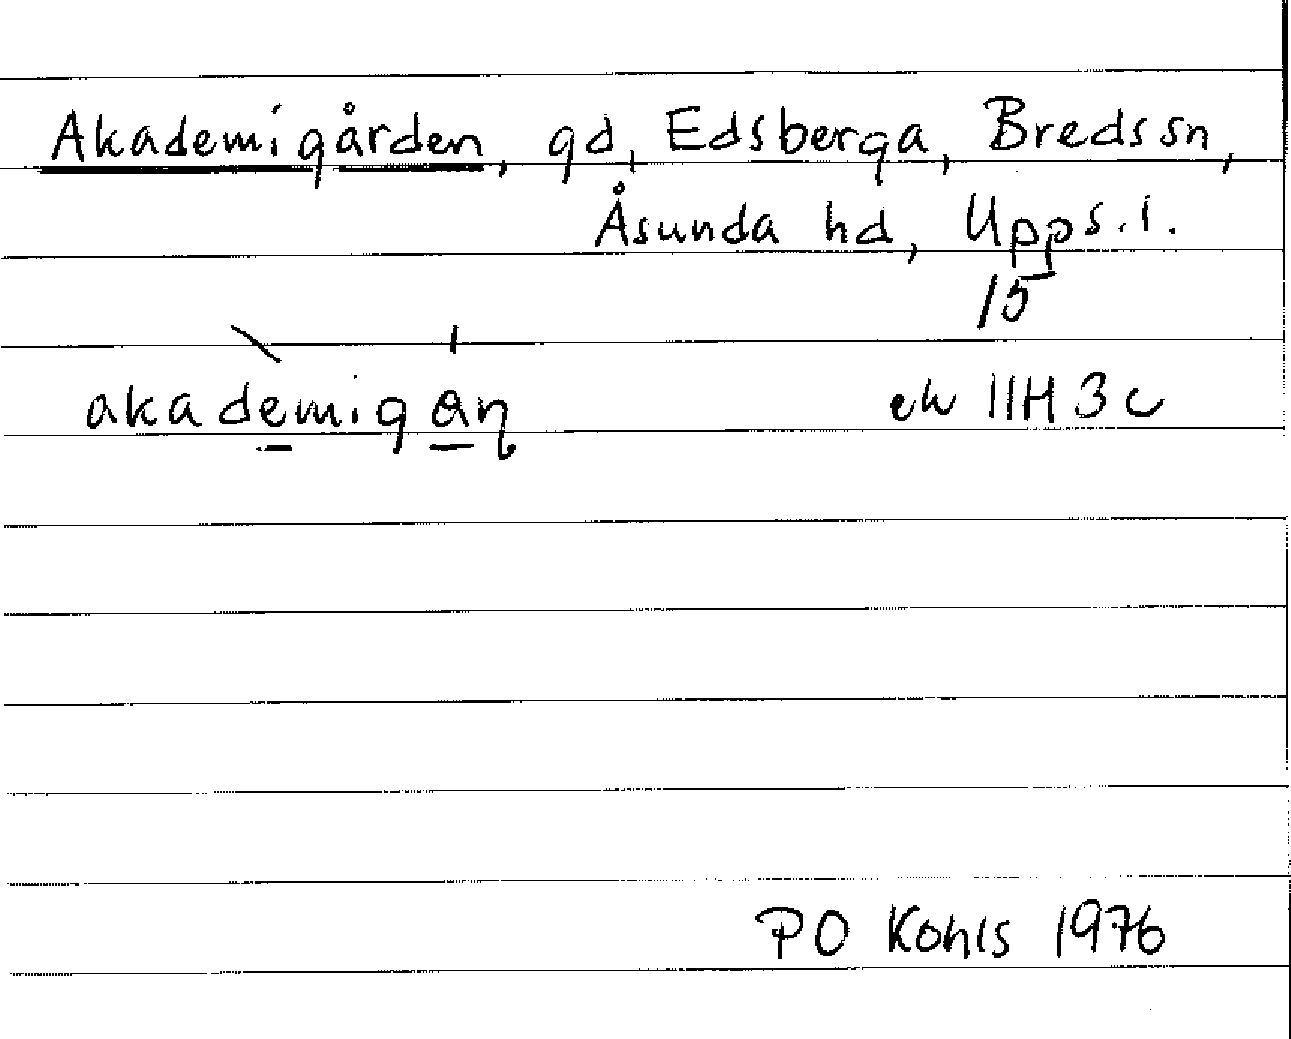 Akademigården, gd, Edsberga, Breds sn,
Åsunda hd, Upps. l.
15
akademigąɳ
ek 11H 3c
PO Kohls 1976